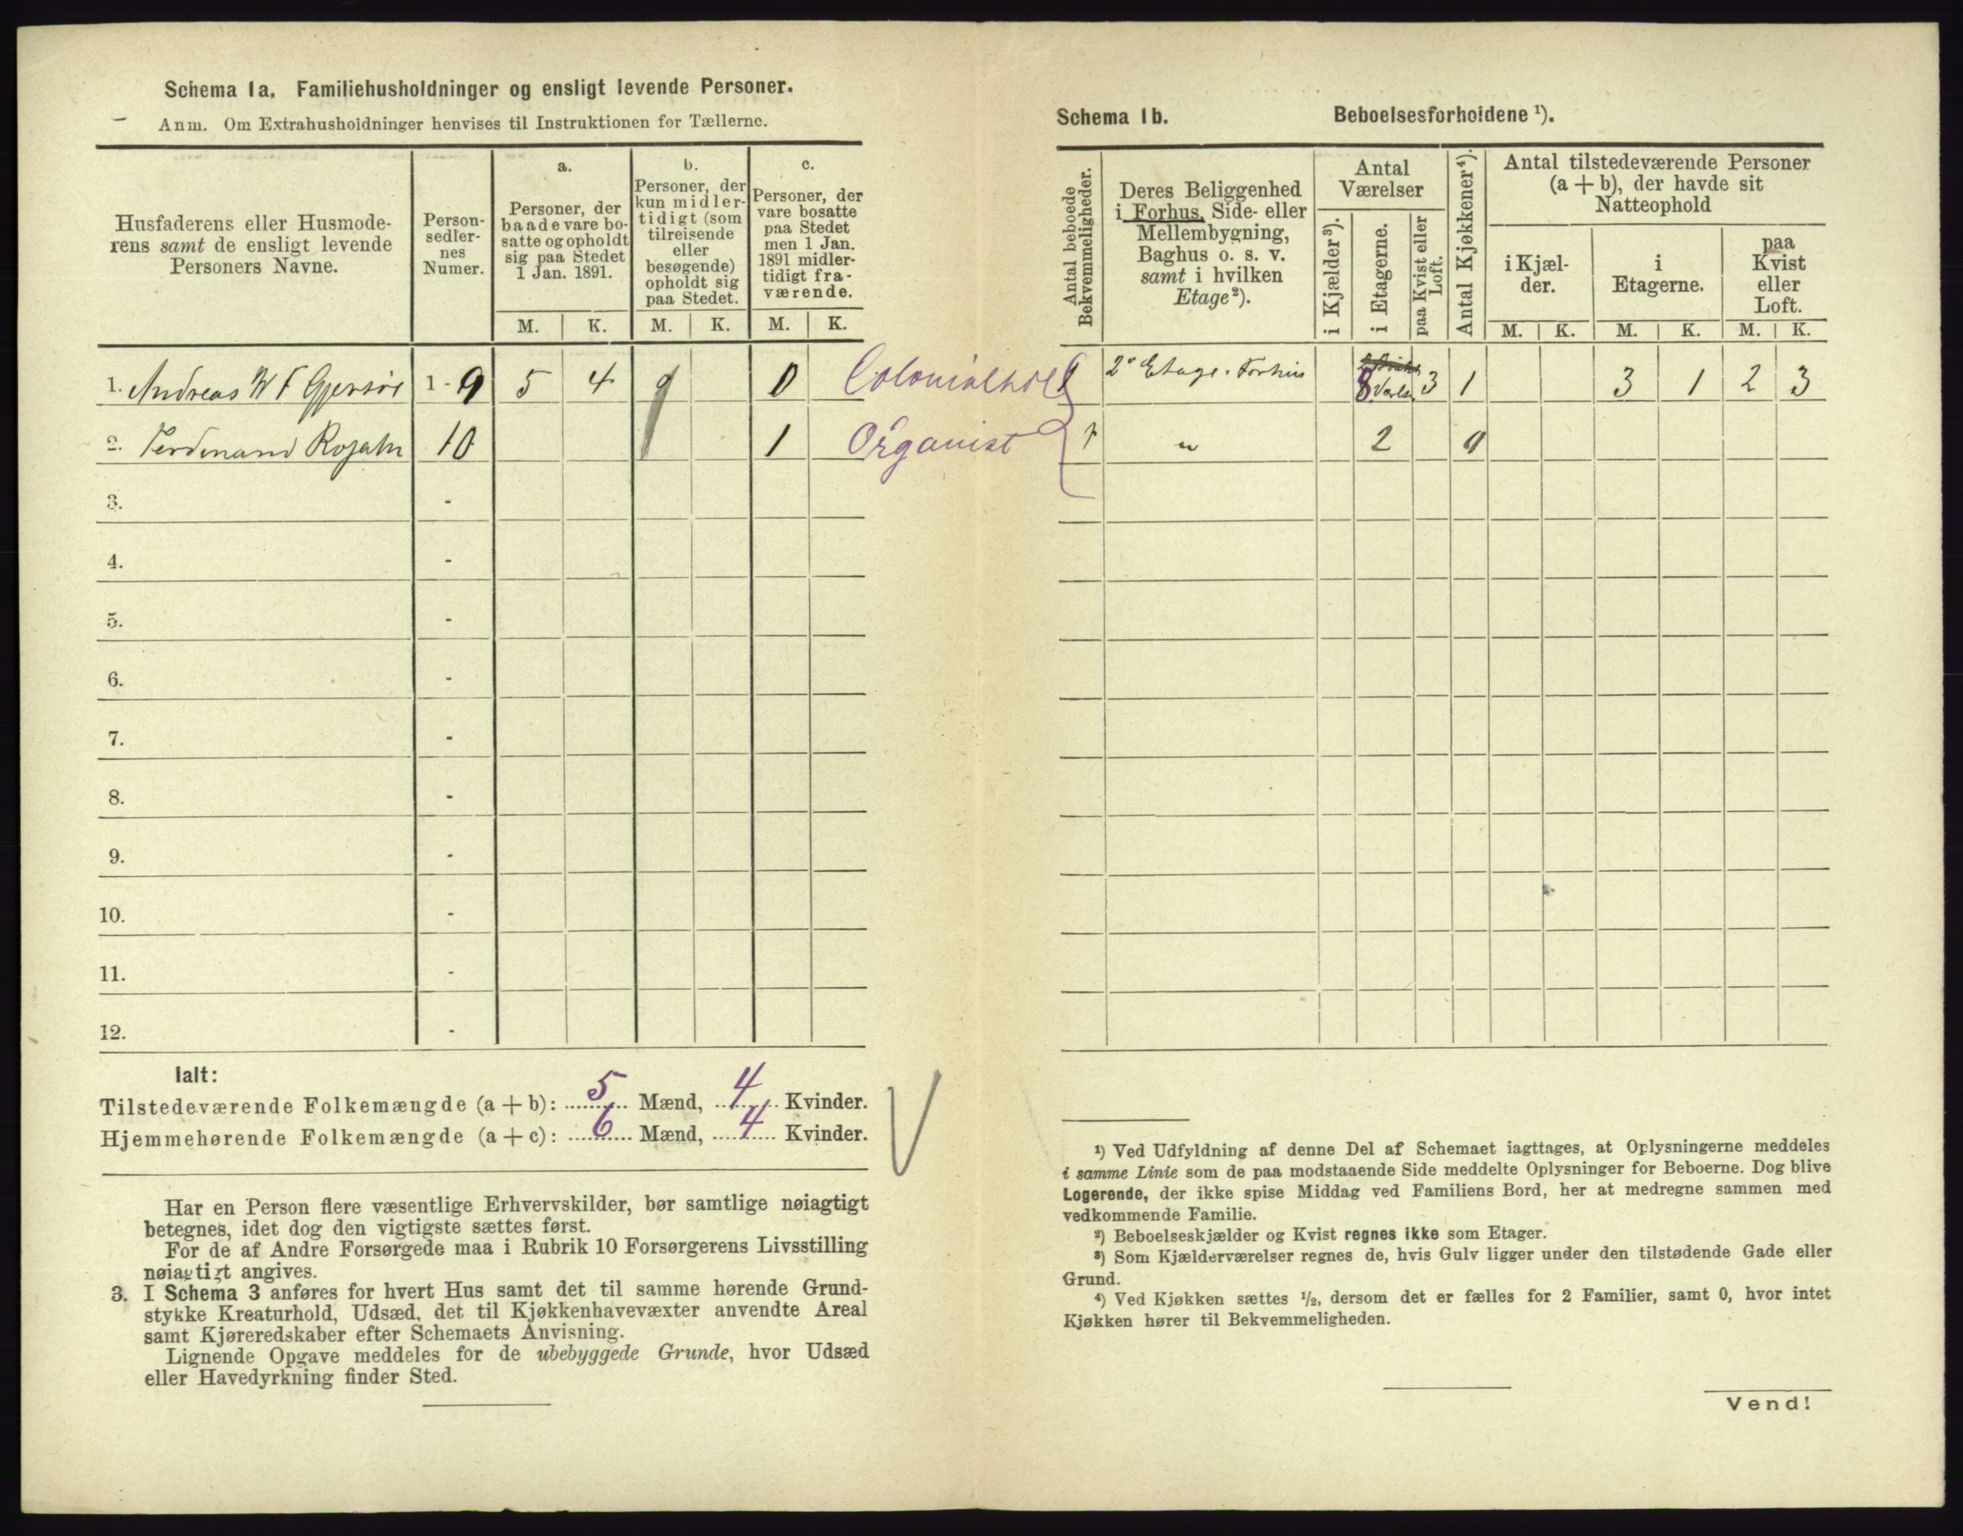 Schema 1a. Familiehusholdninger og ensligt levende Personer.
Anm. Om Extrahusholdninger henvises til Instruktionen for Tællerne.
Husfaderens eller Husmode-
rens samt de ensligt levende
Personers Navne.
Person-
sedler-
nes
Numer.
a.
Personer, der
baade vare bo-
satte og opholdt
sig paa Stedet
1 Jan. 1891.
b.
Personer, der
kun midler-
tidigt (som
tilreisende
eller
besøgende)
opholdt sig
paa Stedet.
c.
Personer, der
vare bosatte
paa Stedet
men 1 Jan.
1891 midler-
tidigt fra-
værende.
M. K. M. K. M. K.
1. Andreas W F Gjersøe 1 - 9 5 4 0 Colonialhdl
2. Ferdinand Rojahn 10 1 Organist
3. -
4. -
5. -
6. -
7. -
8. -
9. -
10. -
11. -
12. -
Ialt:
Tilstedeværende Folkemængde (a + b): 5 Mænd, 4 Kvinder.
Hjemmehørende Folkemængde (a + c): 6 Mænd, 4 Kvinder.
Har en Person flere væsentlige Erhvervskilder, bør samtlige nøiagtigt
betegnes, idet dog den vigtigste sættes først.
For de af Andre Forsørgede maa i Rubrik 10 Forsørgerens Livsstilling
nøiagtigt angives.
3. I Schema 3 anføres for hvert Hus samt det til samme hørende Grund-
stykke Kreaturhold, Udsæd, det til Kjøkkenhavevæxter anvendte Areal
samt Kjøreredskaber efter Schemaets Anvisning.
Lignende Opgave meddeles for de ubebyggede Grunde, hvor Udsæd
eller Havedyrkning finder Sted.
Schema 1b. Beboelsesforholdene ¹).
Antal beboede
Bekvemmeligheder.
Deres Beliggenhed
i Forhus, Side- eller
Mellembygning,
Baghus o. s. v.
samt i hvilken
Etage²).
Antal
Værelser
i Kjælder³).
i Etagerne.
paa Kvist eller
Loft.
Antal Kjøkkener⁴).
Antal tilstedeværende Personer
(a + b), der havde sit
Natteophold
i Kjæl-
der.
i
Etagerne.
paa
Kvist
eller
Loft.
M. K. M. K. M. K.
1 2 Etage. Forhus 8 Værels 3 1 3 1 2 3
1 " 2 0
¹) Ved Udfyldning af denne Del af Schemaet iagttages, at Oplysningerne meddeles
i samme Linie som de paa modstaaende Side meddelte Oplysninger for Beboerne. Dog blive
Logerende, der ikke spise Middag ved Familiens Bord, her at medregne sammen med
vedkommende Familie.
²) Beboelseskjælder og Kvist regnes ikke som Etager.
³) Som Kjælderværelser regnes de, hvis Gulv ligger under den tilstødende Gade eller
Grund.
⁴) Ved Kjøkken sættes ½, dersom det er fælles for 2 Familier, samt 0, hvor intet
Kjøkken hører til Bekvemmeligheden.
Vend!